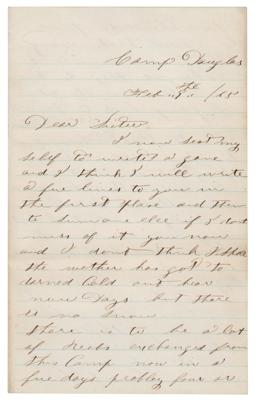 Camp Douglas
Feb 9th /65
Dear Sister
I now seat my
self to write a gane
and I think I will write
a fue lines to you in
the first place and then
to sum one else if I dont
mess of it you now
and I dont think I shal
the wether has got to
darned Cold out hear
now Days but there
is no snow
there is to be a lot
of Rebs exchanged from
this Camp now in a
fue days probley four or